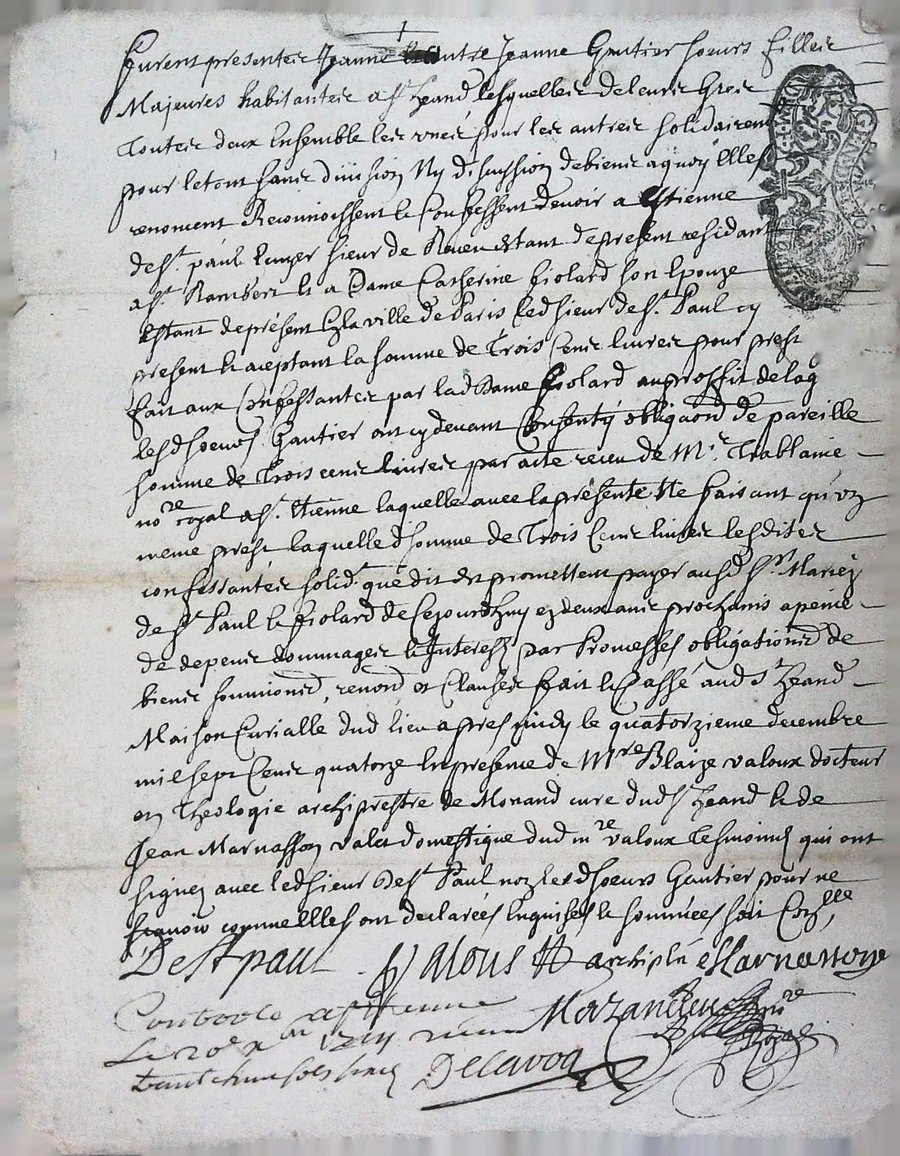 1
furent presentes Jeanne et autre Jeanne Gautier soeurs filles
Majeures habitantes a St. heand lesquelles de leurs Gres
toutes deux Ensemble les unes pour les autres solidairem
pour le tout sans division Ny discussion de biens a quoy Elles
renoncent Reconnoissent et Confessent devoir a Estienne
de St. paul sieur de estant de present residant
a St Rambert et a Dame Catherine fiolard son Epouze
Estant de présent En la ville de Paris ledsieur de St. Paul cy
present et aceptant la somme de Trois Cens livres pour prest
fait aux Confessantes par lad Dame fiolard au proffit de laq
lesd soeurs Gautier ont cy devant Consenty obligaon de pareille
somme de Trois cens livres par acte receu de Mr. Trablaine
nore royal a St. Etienne laquelle avec la présente Ne faisant qu'un
meme prest laquelle d somme de Trois Cens livres lesdites
confessantes solidt. que dit est promettent payer ausd Srs. Mariez
de St Paul et fiolard de Cejourdhuy en deux ans prochains a peine
de depens dommages et Interest par Promesses obligations de
biens soumions, renons et Clauses fait et Passé aud St heand
Maison Curialle dud lieu apres midy le quatorzieme decembre
mil sept Cens quatorze En presence de Mre Blaize valoux docteur
en Theologie archiprestre de cure dud St heand et de
Jean Marnasson valet domestique dud mre valoux Tesmoins qui ont
signez avec ledsieur de St Paul non lesd soeurs Gautier pour ne
scavoir comme Elles ont declarées Enquises et sommées soit
De St paul Valous archiplé Marnasson
Controolé a St Etienne Mazandieu nre
Le 20e xbre 1714 receu Royal
Delavoa